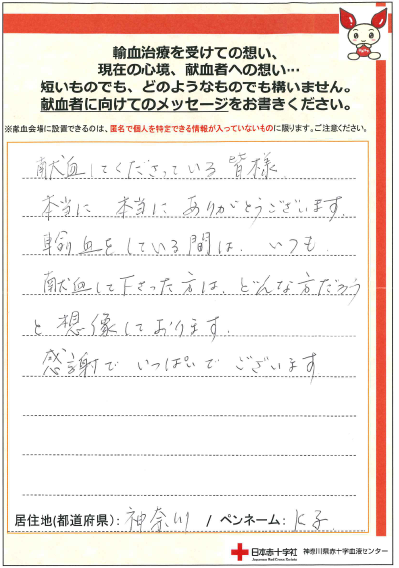 輸血治療を受けての想い、
現在の心境、献血者への想い…
短いものでも、どのようなものでも構いません。
献血者に向けてのメッセージをお書きください。
※献血会場に設置できるのは、匿名で個人を特定できる情報が入っていないものに限ります。ご注意ください。
献血してくださっている皆様
本当に 本当に ありがとうございます.
輸血をしている間は、いつも
献血して下さった方は、どんな方だろう
と想像しております.
感謝で いっぱいで ございます
居住地(都道府県): 神奈川 / ペンネーム: K子
日本赤十字社 神奈川県赤十字血液センター
Japanese Red Cross Society